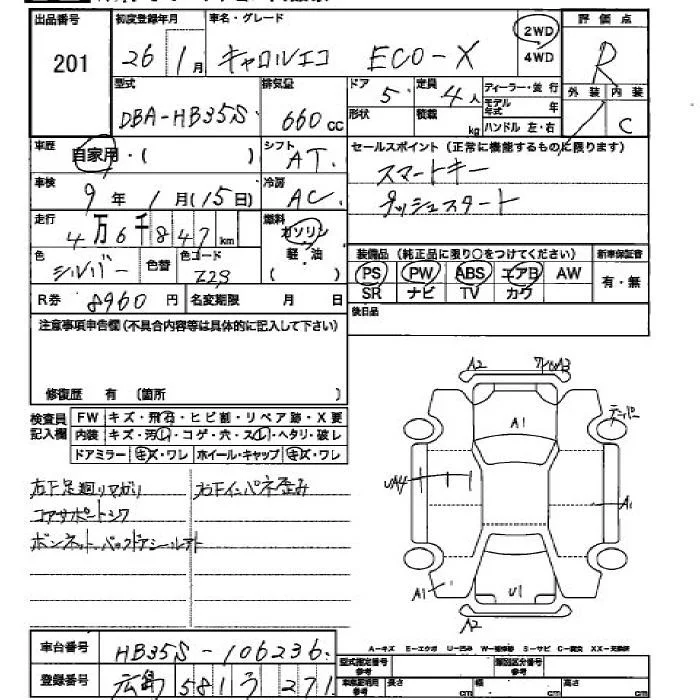 出品番号 初度登録年月 車名・グレード 評価点
201 26 1月 キャロルエコ ECO-X 2WD 4WD R
型式 排気量 ドア 定員 ディーラー・並行 外装 内装
DBA-HB35S 660cc 5 4人 モデル年式 年 C
形状 積載 kg ハンドル 左・右
車歴 自家用・( ) シフト AT. セールスポイント (正常に機能するものに限ります)
車検 9年 1月(15日) 冷房 AC. スマートキー
プッシュスタート
走行 4万6千847km 燃料 ガソリン 軽・油 ( )
色 シルバー 色替 色コード Z2S
装備品 (純正品に限り○をつけてください) 新車保証書
PS PW ABS エアB AW 有・無
SR ナビ TV カワ
R券 8960円 名変期限 月 日 後日品
注意事項申告欄(不具合内容等は具体的に記入して下さい)
修復歴 有 (箇所 )
検査員記入欄 FW キズ・飛石・ヒビ割・リペア跡・X要
内装 キズ・汚レ・コゲ・穴・スレ・ヘタリ・破レ
ドアミラー キズ・ワレ ホイール・キャップ キズ・ワレ
右F足廻りマガリ 右Fインパネ歪み
コアサポートシワ
ボンネット、バックドアシール
A2 A3
A1 テンパー
A1
A1 U1
A2
A-キズ E-エクボ U-凹み W-補修跡 S-サビ C-腐食 XX-交換済
車台番号 HB35S-106236. 型式指定番号 参考 類別区分番号 参考
登録番号 広島 581 271 車庫証明用 参考 長さ cm 幅 cm 高さ cm